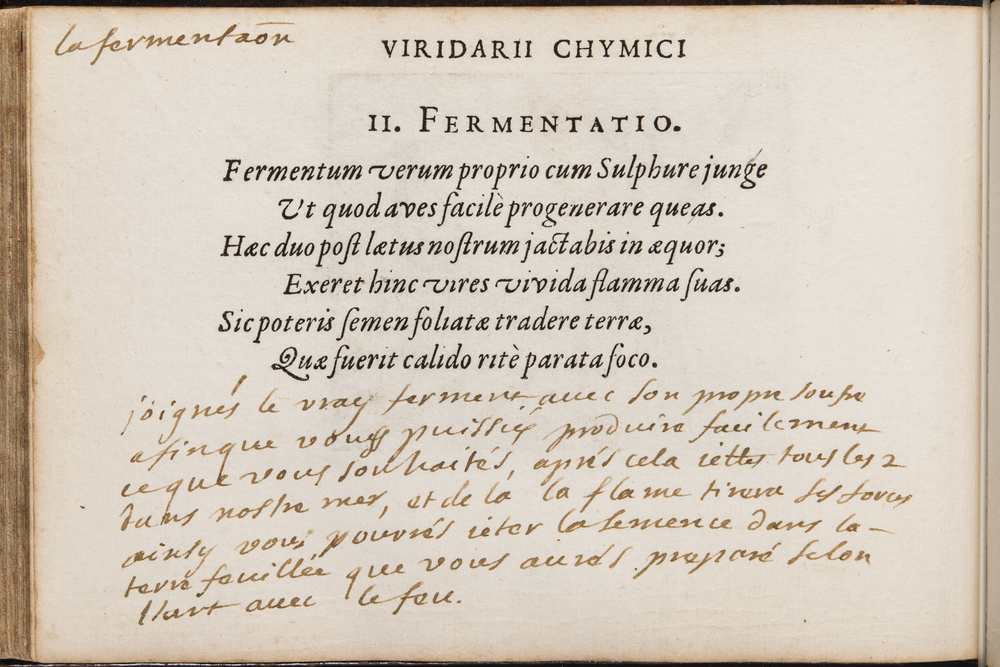 la fermentaōn
VIRIDARII CHYMICI
II. FERMENTATIO.
Fermentum verum proprio cum Sulphure junge
Ut quod aves facilè progenerare queas.
Hæc duo poſt lætus noſtrum jactabis in æquor;
Exeret hinc vires vivida flamma ſuas.
Sic poteris ſemen foliatæ tradere terræ,
Quæ fuerit calido ritè parata foco.
joignés le vray ferment avec son propre soufre
afinque vous puissiés produire facilement
ce que vous souhaités, aprés cela iettes tous les 2
dans nostre mer, et de là la flame tirera ses forces
ainsy vous pourrés ieter la semence dans la
terre feuillée que vous aurés preparé selon
l'art avec le feu.